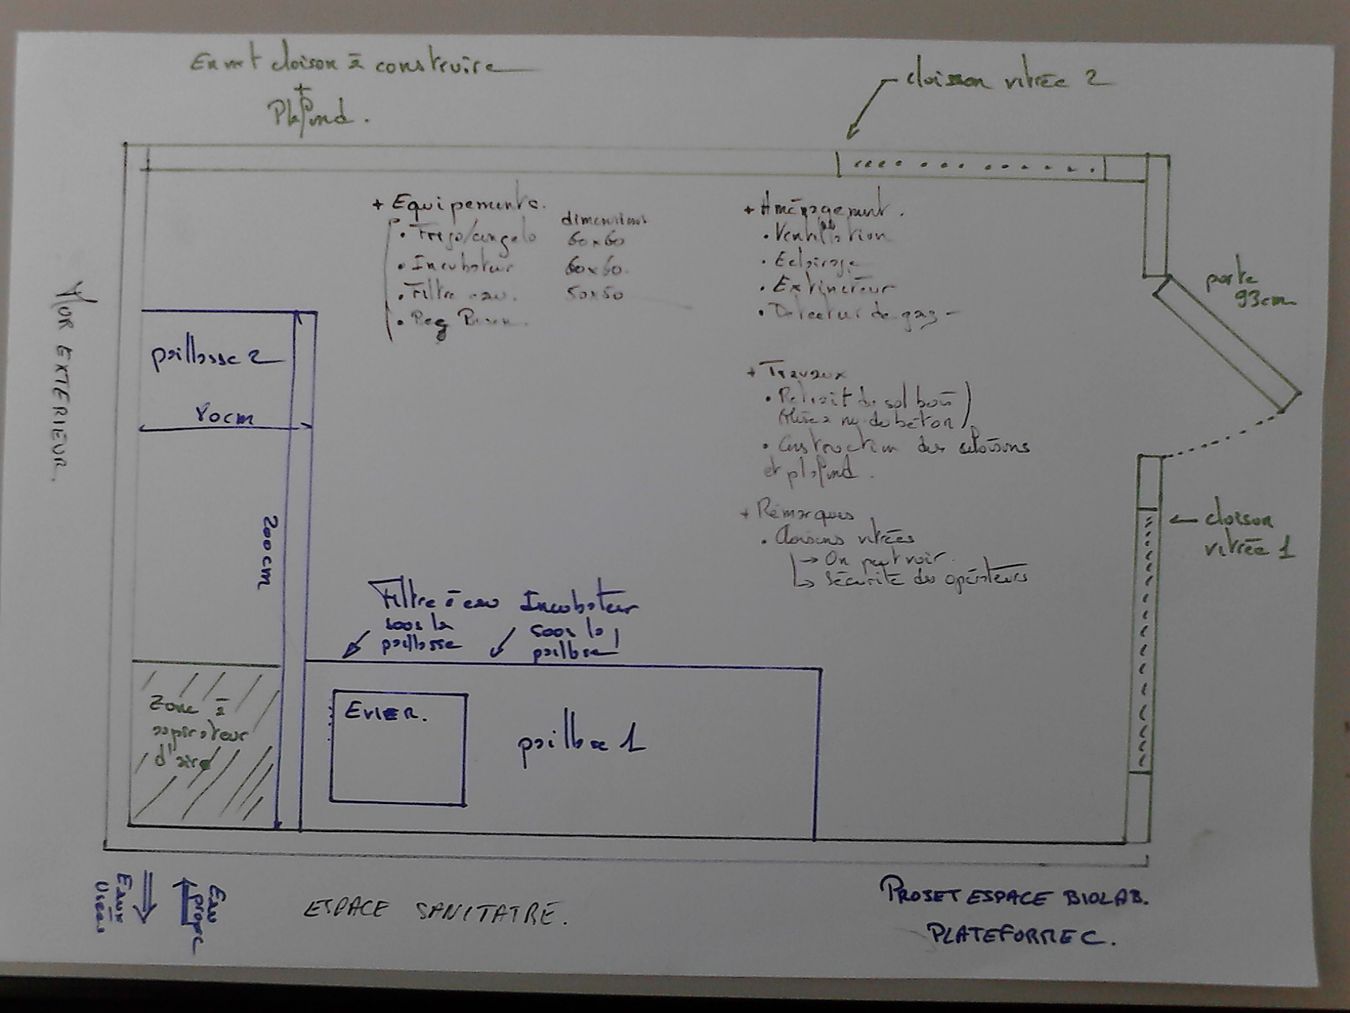 En vert cloison à construire
+
Plafond.
cloison vitrée 2
+ Equipements.
dimensions
• Frigo/congelo 60x60
• Incubateur 60x60
• Filtre eau. 50x50
• Beg
+ Aménagement.
• Ventilation
• Eclairage
• Extincteur
• Detecteur de gaz
porte
93cm
MUR EXTERIEUR.
paillasse 2
80cm
200cm
+ Travaux
• Retrait du sol bois
(Mise à nu du béton)
• Construction des cloisons
et plafond.
+ Remarques
• Cloisons vitrées
→ On peut voir.
→ Sécurité des opérateurs
← cloison
vitrée 1
Filtre à eau
sous la
paillasse
Incubateur
sous la
paillasse
Zone à
aspirateur
d'aire
EVIER.
paillasse 1
Eaux
Usées
Eau
propre
ESPACE SANITAIRE.
PROJET ESPACE BIOLAB.
PLATEFORME C.